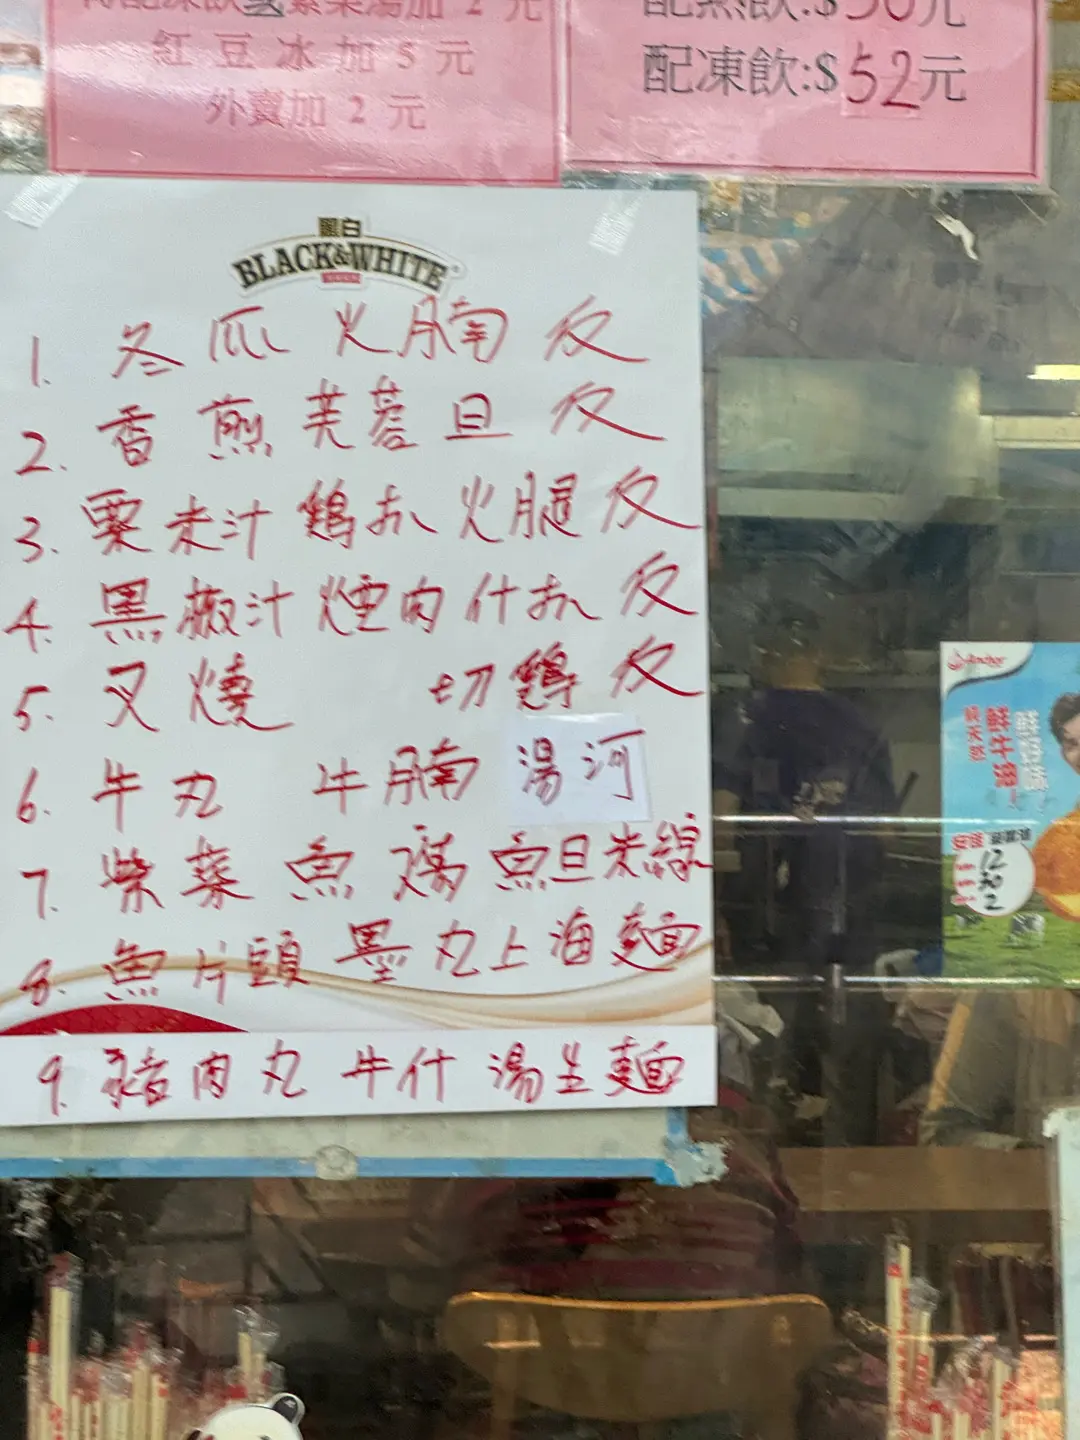 特配凍飲或紫菜湯加 2 元
紅豆冰加 5 元
外賣加 2 元
配熱飲:$50元
配凍飲:$52元
黑白
BLACK&WHITE
1. 冬瓜火腩反
2. 香煎芙蓉旦反
3. 粟米汁鷄扒火腿反
4. 黑椒汁煙肉什扒反
5. 叉燒 切鷄反
6. 牛丸 牛腩湯河
7. 柴菜魚 魚旦米線
8. 魚片頭墨丸上海麵
9. 豬肉丸 牛什 湯生麵
Anchor
純天然
鮮牛油!
安佳
12
30
2